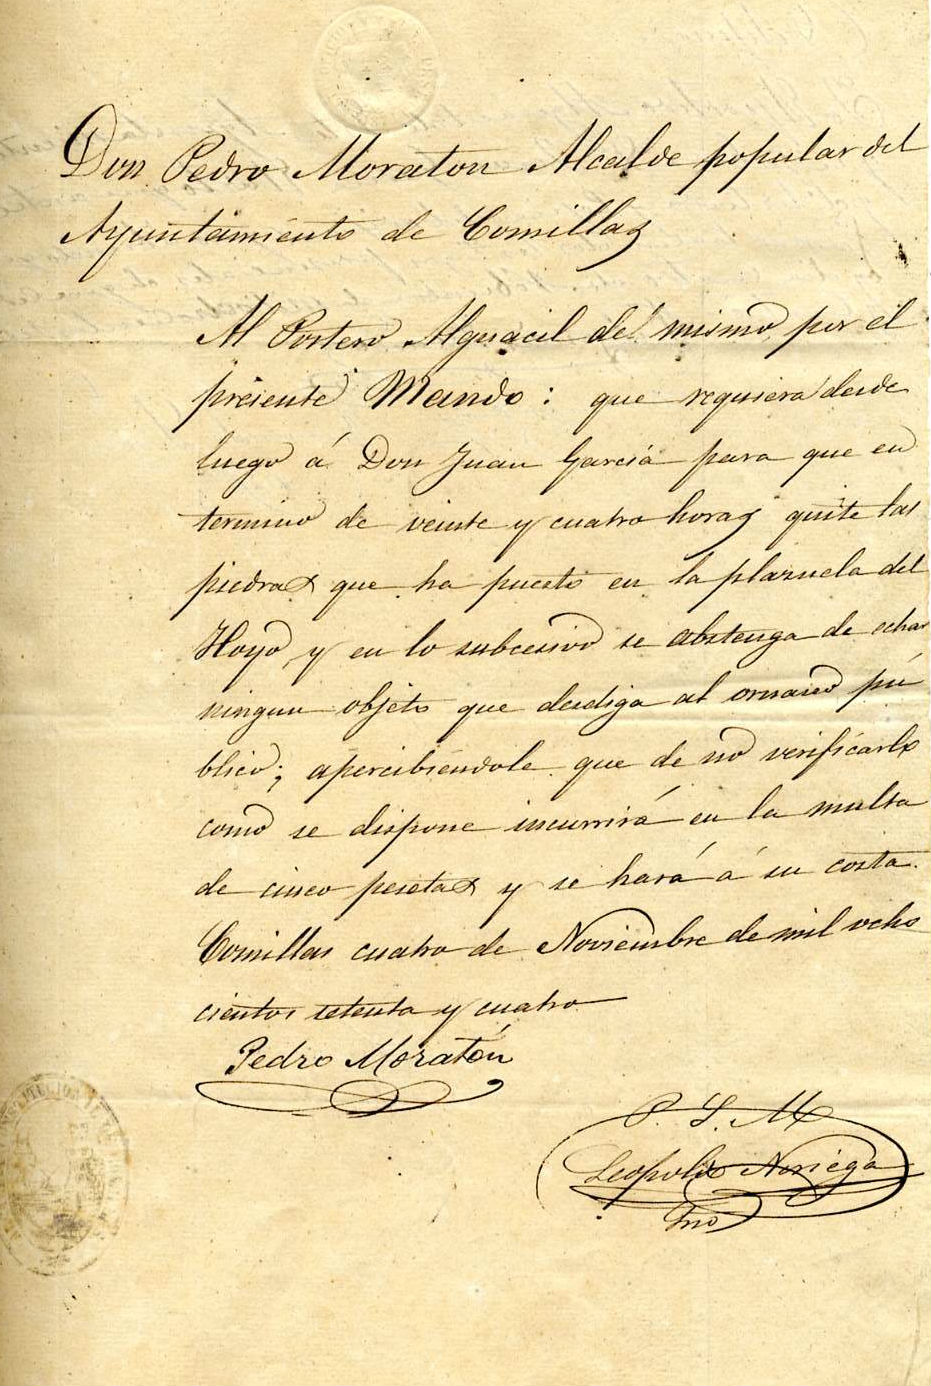 Don Pedro Moraton Alcalde popular del
Ayuntamiento de Comillas
Al Portero Alguacil del mismo, por el
presente Mando: que requiera desde
luego á Don Juan Garcia para que en
termino de veinte y cuatro horas quite las
piedras que ha puesto en la plazuela del
Hoyo, y en lo subcesivo se abstenga de echar
ningun objeto que desdiga al ornato pú
blico; apercibiendole que de no verificarlo
como se dispone incurrirá en la multa
de cinco pesetas y se hará á su costa.
Comillas cuatro de Noviembre de mil ocho
cientos setenta y cuatro
Pedro Moratón
P. S. M.
Leopoldo Noriega